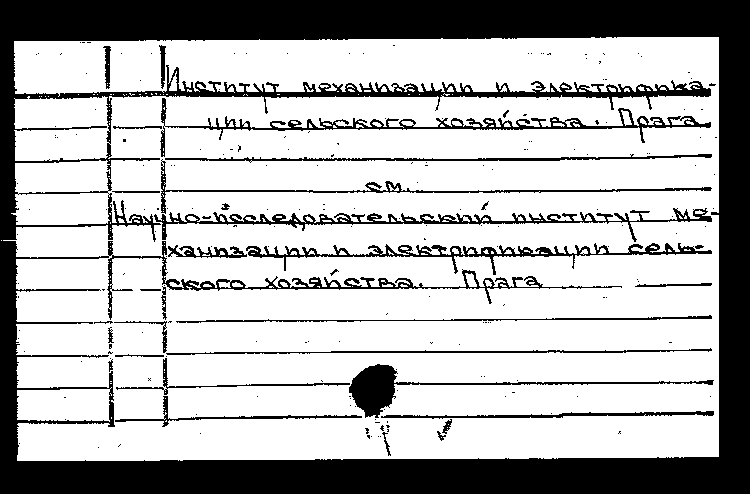 Институт механизации и электрифика-
ции сельского хозяйства. Прага
см.
Научно-исследовательский институт ме-
ханизации и электрификации сель-
ского хозяйства. Прага